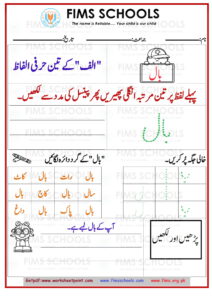 FIMS SCHOOLS
The name is Reliable.... Your child is our child
نام: جماعت: تاریخ:
"الف" کے تین حرفی الفاظ
بال
پہلے لفظ پر تین مرتبہ انگلی پھیریں پھر پنسل کی مدد سے لکھیں۔
بال
خالی جگہ پُر کریں۔
"بال" کے گرد دائرہ لگائیں
بال رات بال کاٹ
سال بال کاج بال
بال پاک بال داغ
پڑھیں اور لکھیں
آپ کے بال لمبے ہے۔
www.fimsschools.com
www.fims.org.pk